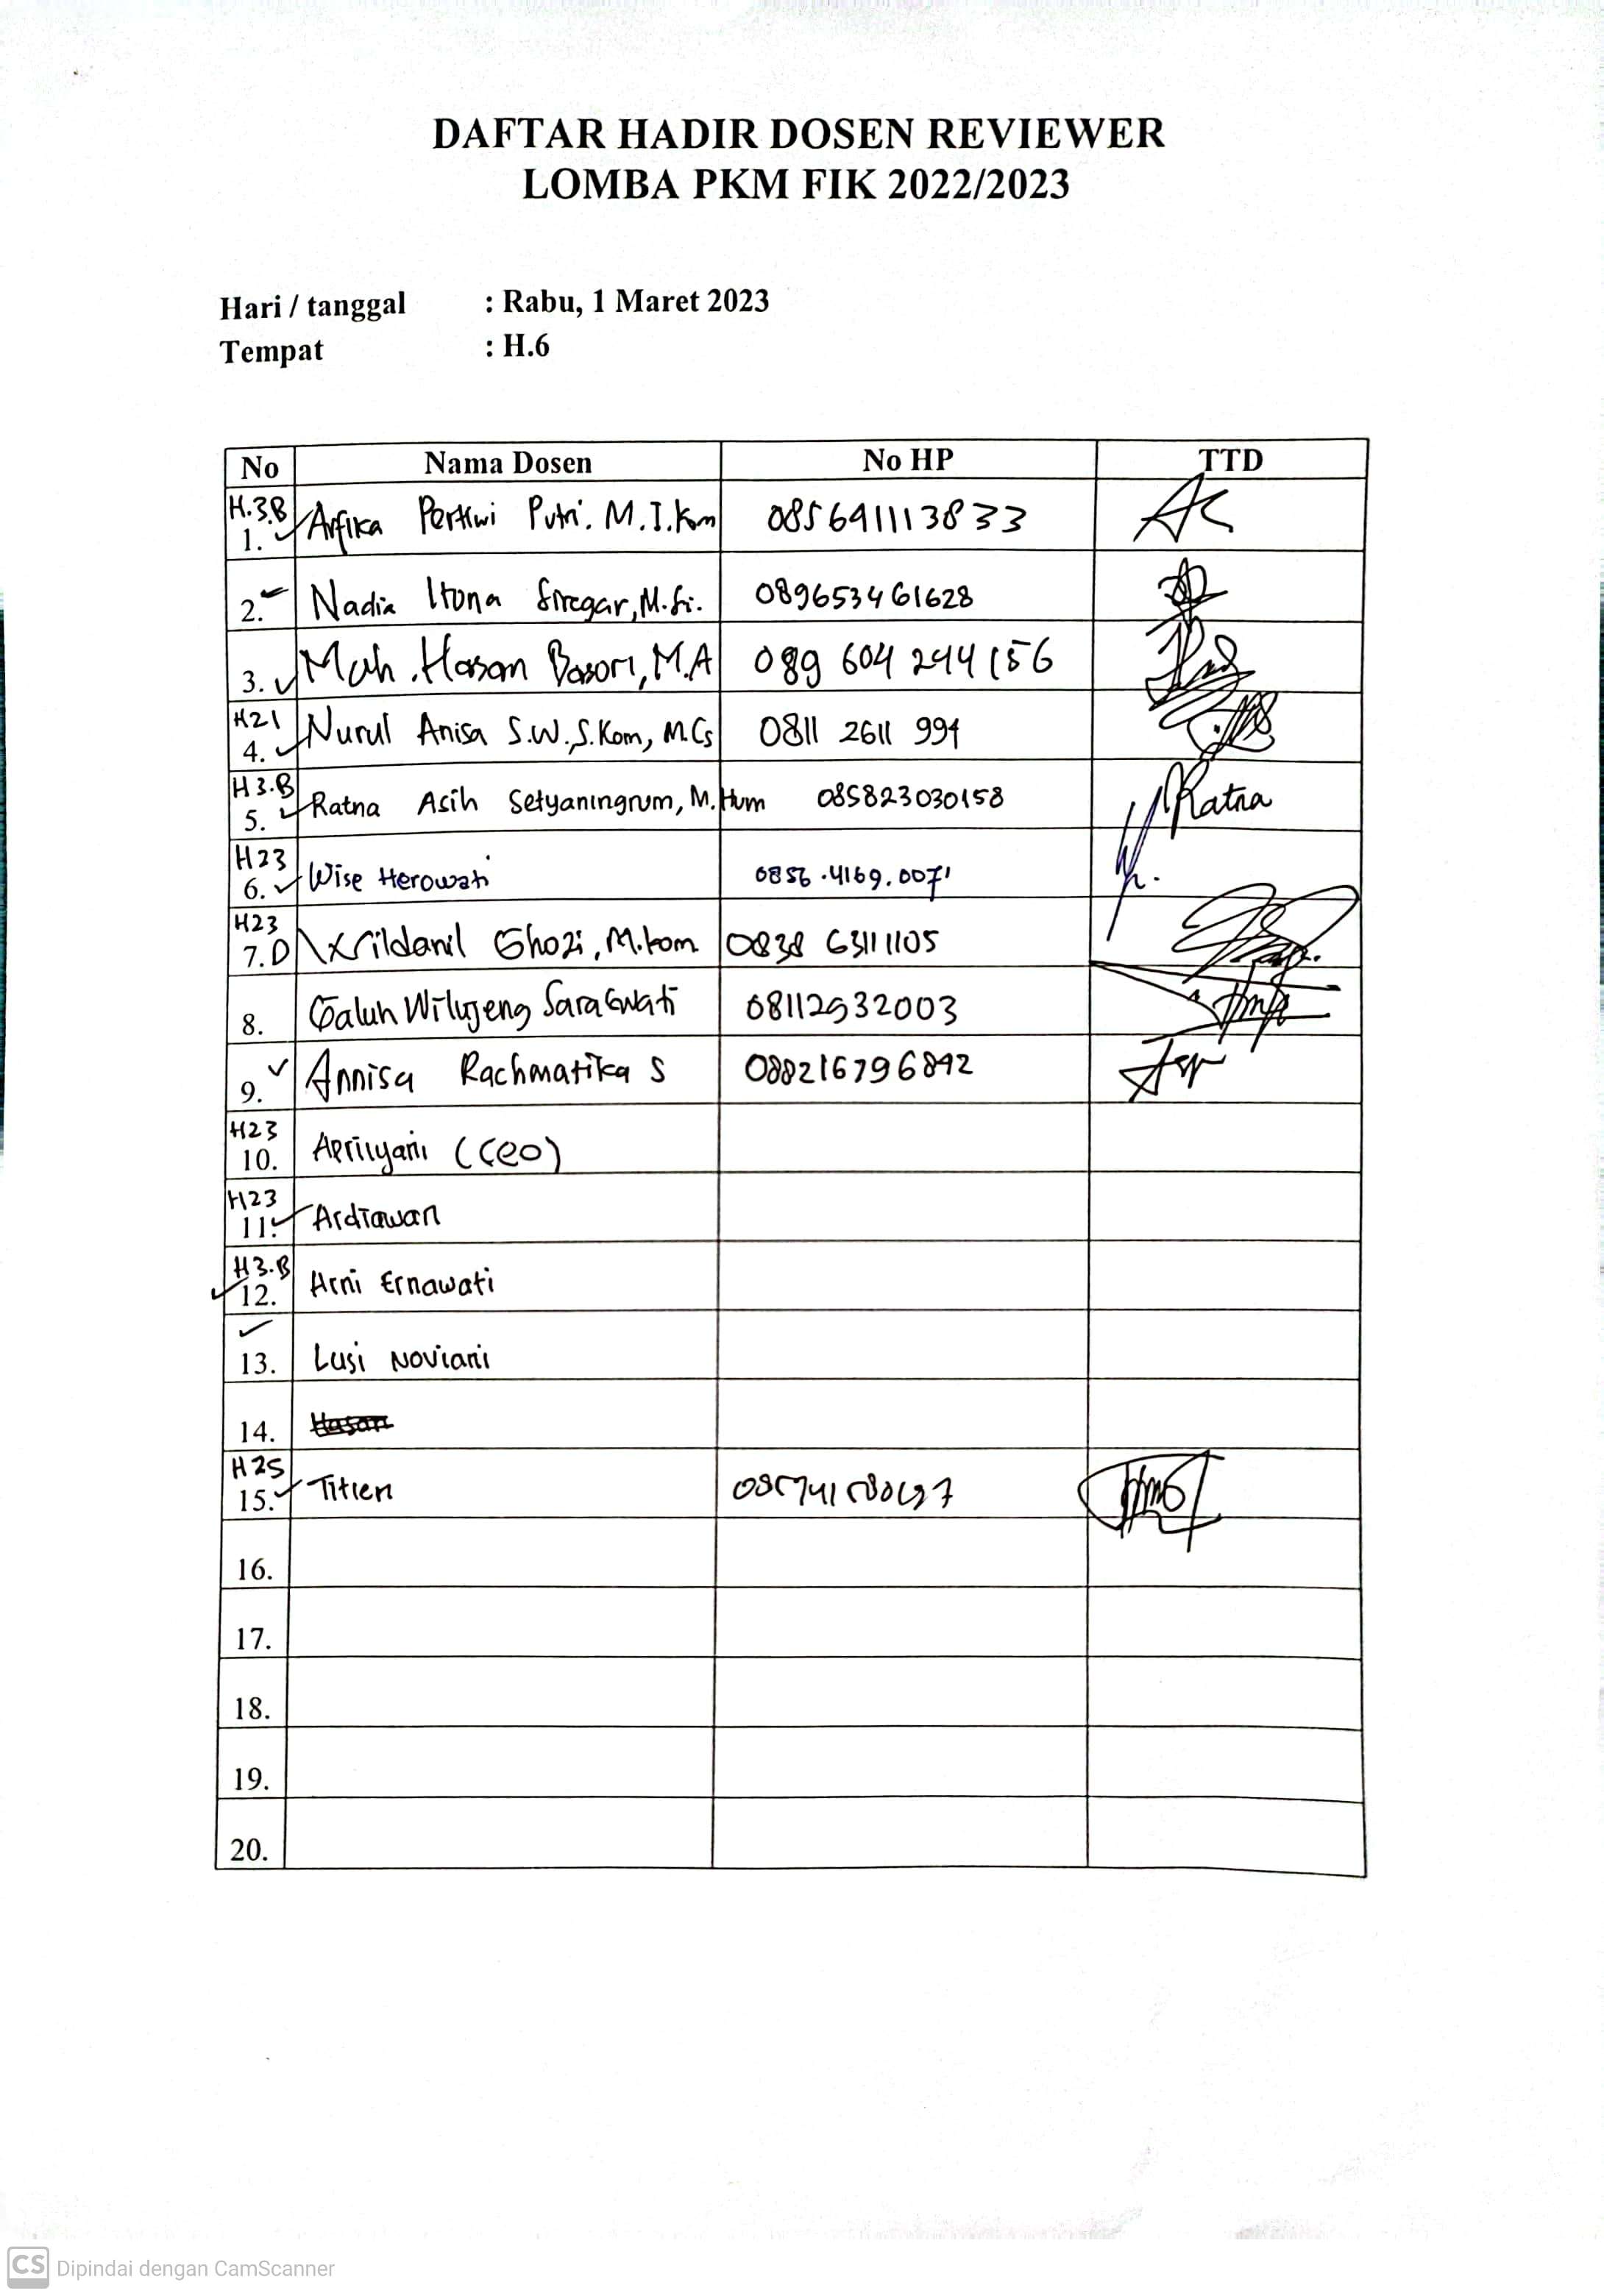 DAFTAR HADIR DOSEN REVIEWER
LOMBA PKM FIK 2022/2023
Hari / tanggal : Rabu, 1 Maret 2023
Tempat : H.6
No Nama Dosen No HP TTD
H.3.B
1. Arfika Pertiwi Putri. M.I.Kom 085691113833
2. Nadia Itona Siregar, M.Si. 089653461628
3. Moh. Hasan Basori, M.A 089 604 244 156
H21
4. Nurul Anisa S.W, S.Kom, M.Cs 0811 2611 991
H3.B
5. Ratna Asih Setyaningrum, M.Hum 085823030158 Ratna
H23
6. Wise Herowati 0856.4169.0071
H23
7. D Wildanil Ghozi, M.kom 0838 63111105
8. Galuh Wilujeng Saraswati 08112932003
9. Annisa Rachmatika S 088216796892
H23
10. Aprilyani (CEO)
H23
11. Ardiawan
H3.B
12. Arni Ernawati
13. Lusi Noviani
14. Hasan
H25
15. Titien
16.
17.
18.
19.
20.
CS Dipindai dengan CamScanner